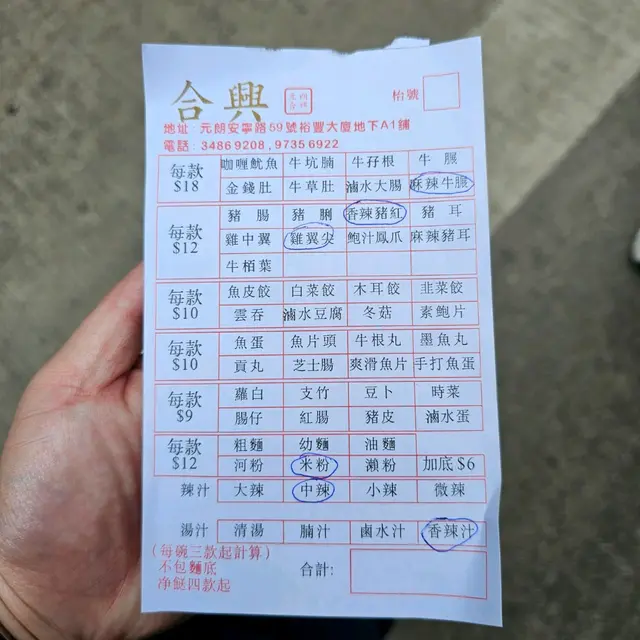 合興 枱號
地址 元朗安寧路59號裕豐大廈地下A1舖
電話：34869208,97356922
每款 $18
咖喱魷魚 牛坑腩 牛孖根 牛𦟌
金錢肚 牛草肚 滷水大腸 麻辣牛𦟌
每款 $12
豬腸 豬脷 香辣豬紅 豬耳
雞中翼 雞翼尖 鮑汁鳳爪 麻辣豬耳
牛栢葉
每款 $10
魚皮餃 白菜餃 木耳餃 韭菜餃
雲吞 滷水豆腐 冬菇 素鮑片
每款 $10
魚蛋 魚片頭 牛根丸 墨魚丸
貢丸 芝士腸 爽滑魚片 手打魚蛋
每款 $9
蘿白 支竹 豆卜 時菜
腸仔 紅腸 豬皮 滷水蛋
每款 $12
粗麵 幼麵 油麵
河粉 米粉 瀨粉 加底 $6
辣汁 大辣 中辣 小辣 微辣
湯汁 清湯 腩汁 鹵水汁 香辣汁
(每碗三款起計算)
不包麵底
净餸四款起
合計: